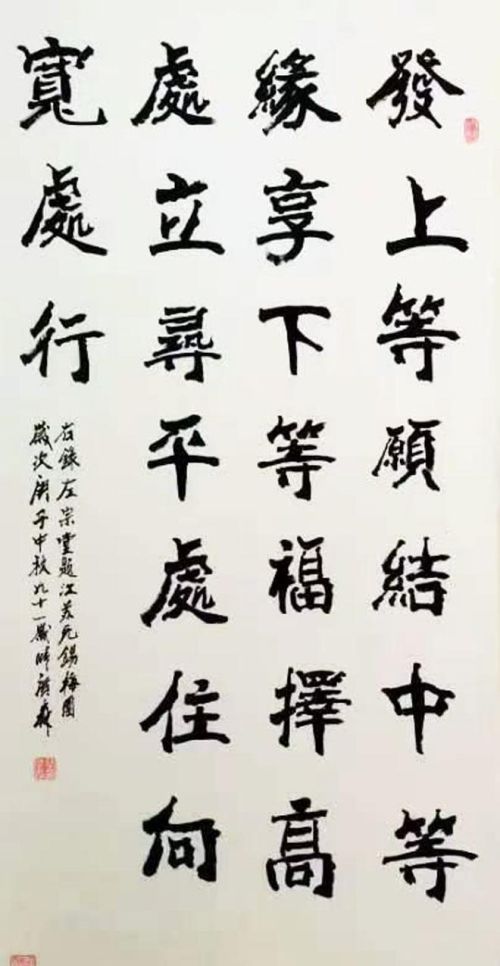 發上等願結中等
緣享下等福擇高
處立尋平處住向
寬處行
右錄左宗堂題江蘇无錫梅園
歲次庚子中秋九十一歲